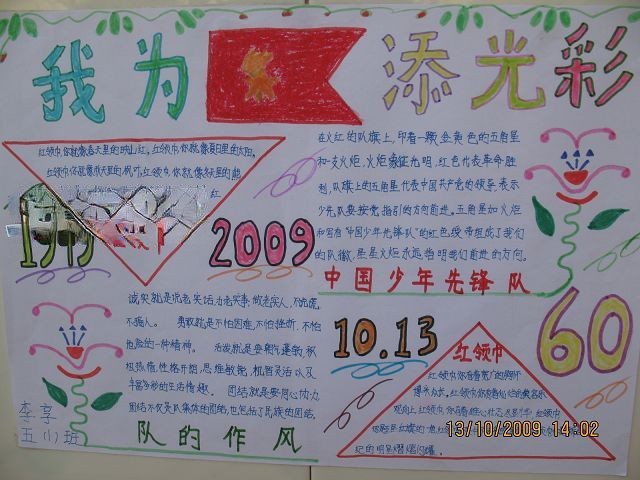 我为
添光彩
红领巾,你就像春天里的映山红,红领巾,你就像夏日里的太阳,
红领巾,你就像秋天里的枫叶,红领巾,你就像冬季里的
红
2009
在火红的队旗上,印着一颗金黄色的五角星
和一支火炬,火炬象征光明,红色代表革命胜
利,队旗上的五角星代表中国共产党的领导,表示
少先队要按党指引的方向前进。五角星加火炬
和写有“中国少年先锋队”的红色绶带组成了我们
的队徽,星星火炬永远指明我们前进的方向。
中国少年先锋队
诚实就是说老实话,办老实事,做老实人,不说谎,
不骗人。 勇敢就是不怕困难,不怕挫折,不怕
危险的一种精神。 活泼就是要朝气蓬勃,积
极热情,性格开朗,思维敏捷,机智灵活以及
丰富多彩的生活情趣。 团结就是要同心协力
团结不仅是队集体的团结,也包括了民族的团结。
队的作风
李享
五(1)班
10.13
60
红领巾
红领巾,你有着宽广的胸怀
观,向上,红领巾,你有着雄心壮志
13/10/2009 14:02